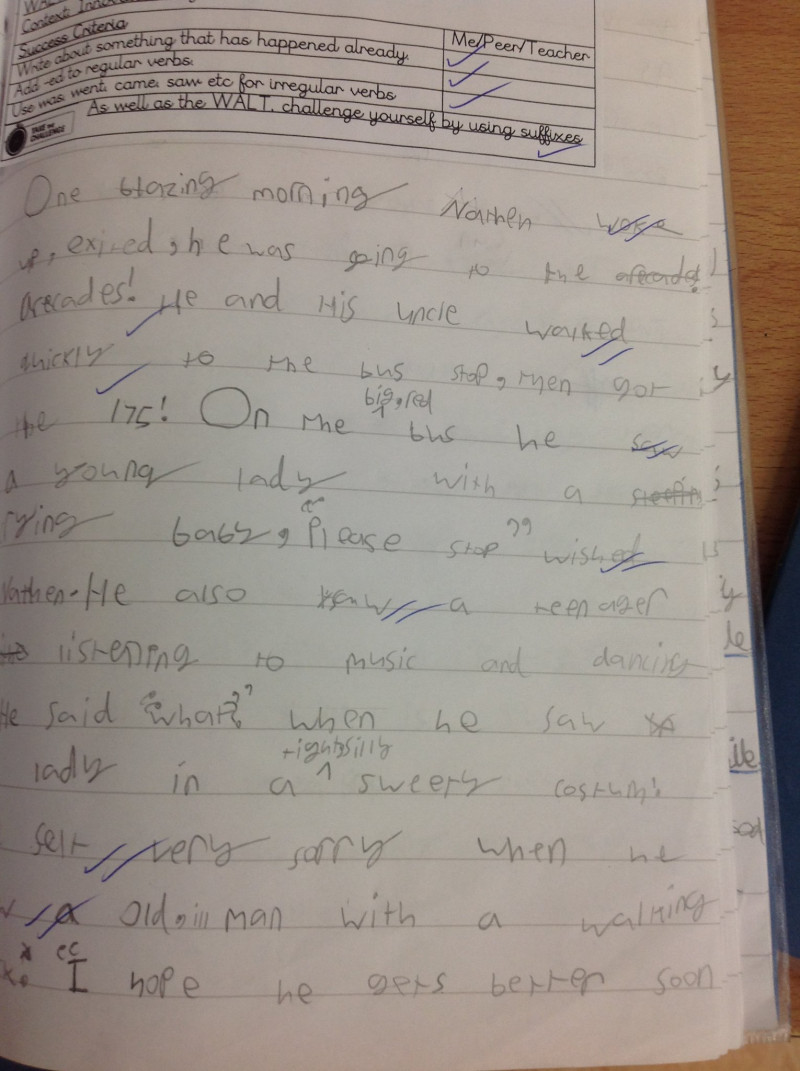 Context
Success Criteria
Me/Peer/Teacher
Write about something that has happened already.
Add -ed to regular verbs.
Use was, went, came, saw etc for irregular verbs
As well as the WALT, challenge yourself by using suffixes
TAKE THE CHALLENGE
One blazing morning Nathen woke
up, exited, he was going to the arecades!
Arecades! He and His uncle walked
quickly to the bus stop, then got
the 175! On the big, red bus he saw
a young lady with a
rying baby, "Please stop" wished
Nathen. He also saw a teenager
listening to music and dancing
He said "what?" when he saw
lady in a tight, silly sweety costum
felt very sorry when he
a old, ill man with a walking
"I hope he gets better soon